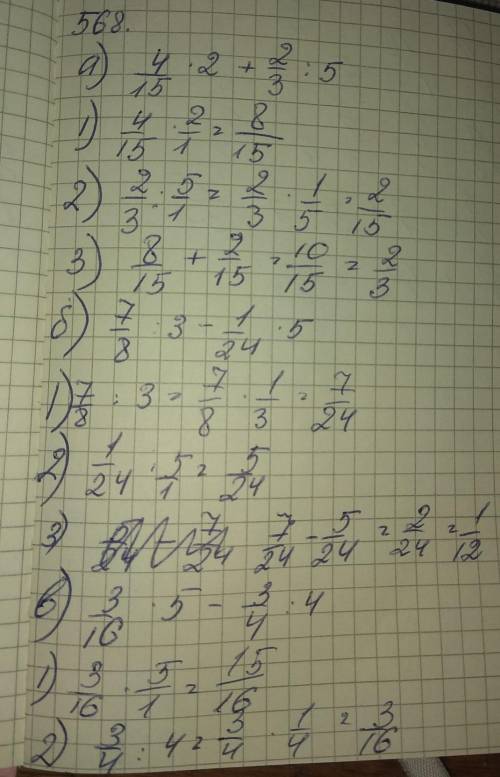 568.
а) 4/15 · 2 + 2/3 : 5
1) 4/15 · 2/1 = 8/15
2) 2/3 : 5/1 = 2/3 · 1/5 = 2/15
3) 8/15 + 2/15 = 10/15 = 2/3
б) 7/8 : 3 - 1/24 · 5
1) 7/8 : 3 = 7/8 · 1/3 = 7/24
2) 1/24 · 5/1 = 5/24
3) 7/24 - 5/24 = 2/24 = 1/12
в) 3/16 · 5 - 3/4 : 4
1) 3/16 · 5/1 = 15/16
2) 3/4 : 4 = 3/4 · 1/4 = 3/16